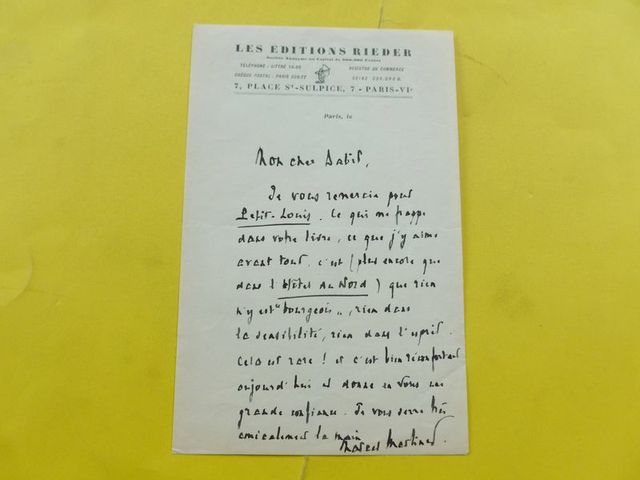 LES EDITIONS RIEDER
Société Anonyme au Capital de 500.000 Francs
TÉLÉPHONE : LITTRÉ
REGISTRE DU COMMERCE
CHÈQUE POSTAL : PARIS
SEINE
7, PLACE St-SULPICE, 7 - PARIS-VIe
Paris, le
Mon cher Dabit,
Je vous remercie pour
Petit-Louis. Ce qui me frappe
dans votre livre, ce que j'y aime
avant tout, c'est (plus encore que
dans l'Hôtel du Nord) que rien
n'y est "bourgeois", rien dans
la sensibilité, rien dans l'esprit.
Cela est rare ! et c'est bien réconfortant
aujourd'hui et donne en vous une
grande confiance. Je vous serre très
amicalement la main
Marcel Martinet.